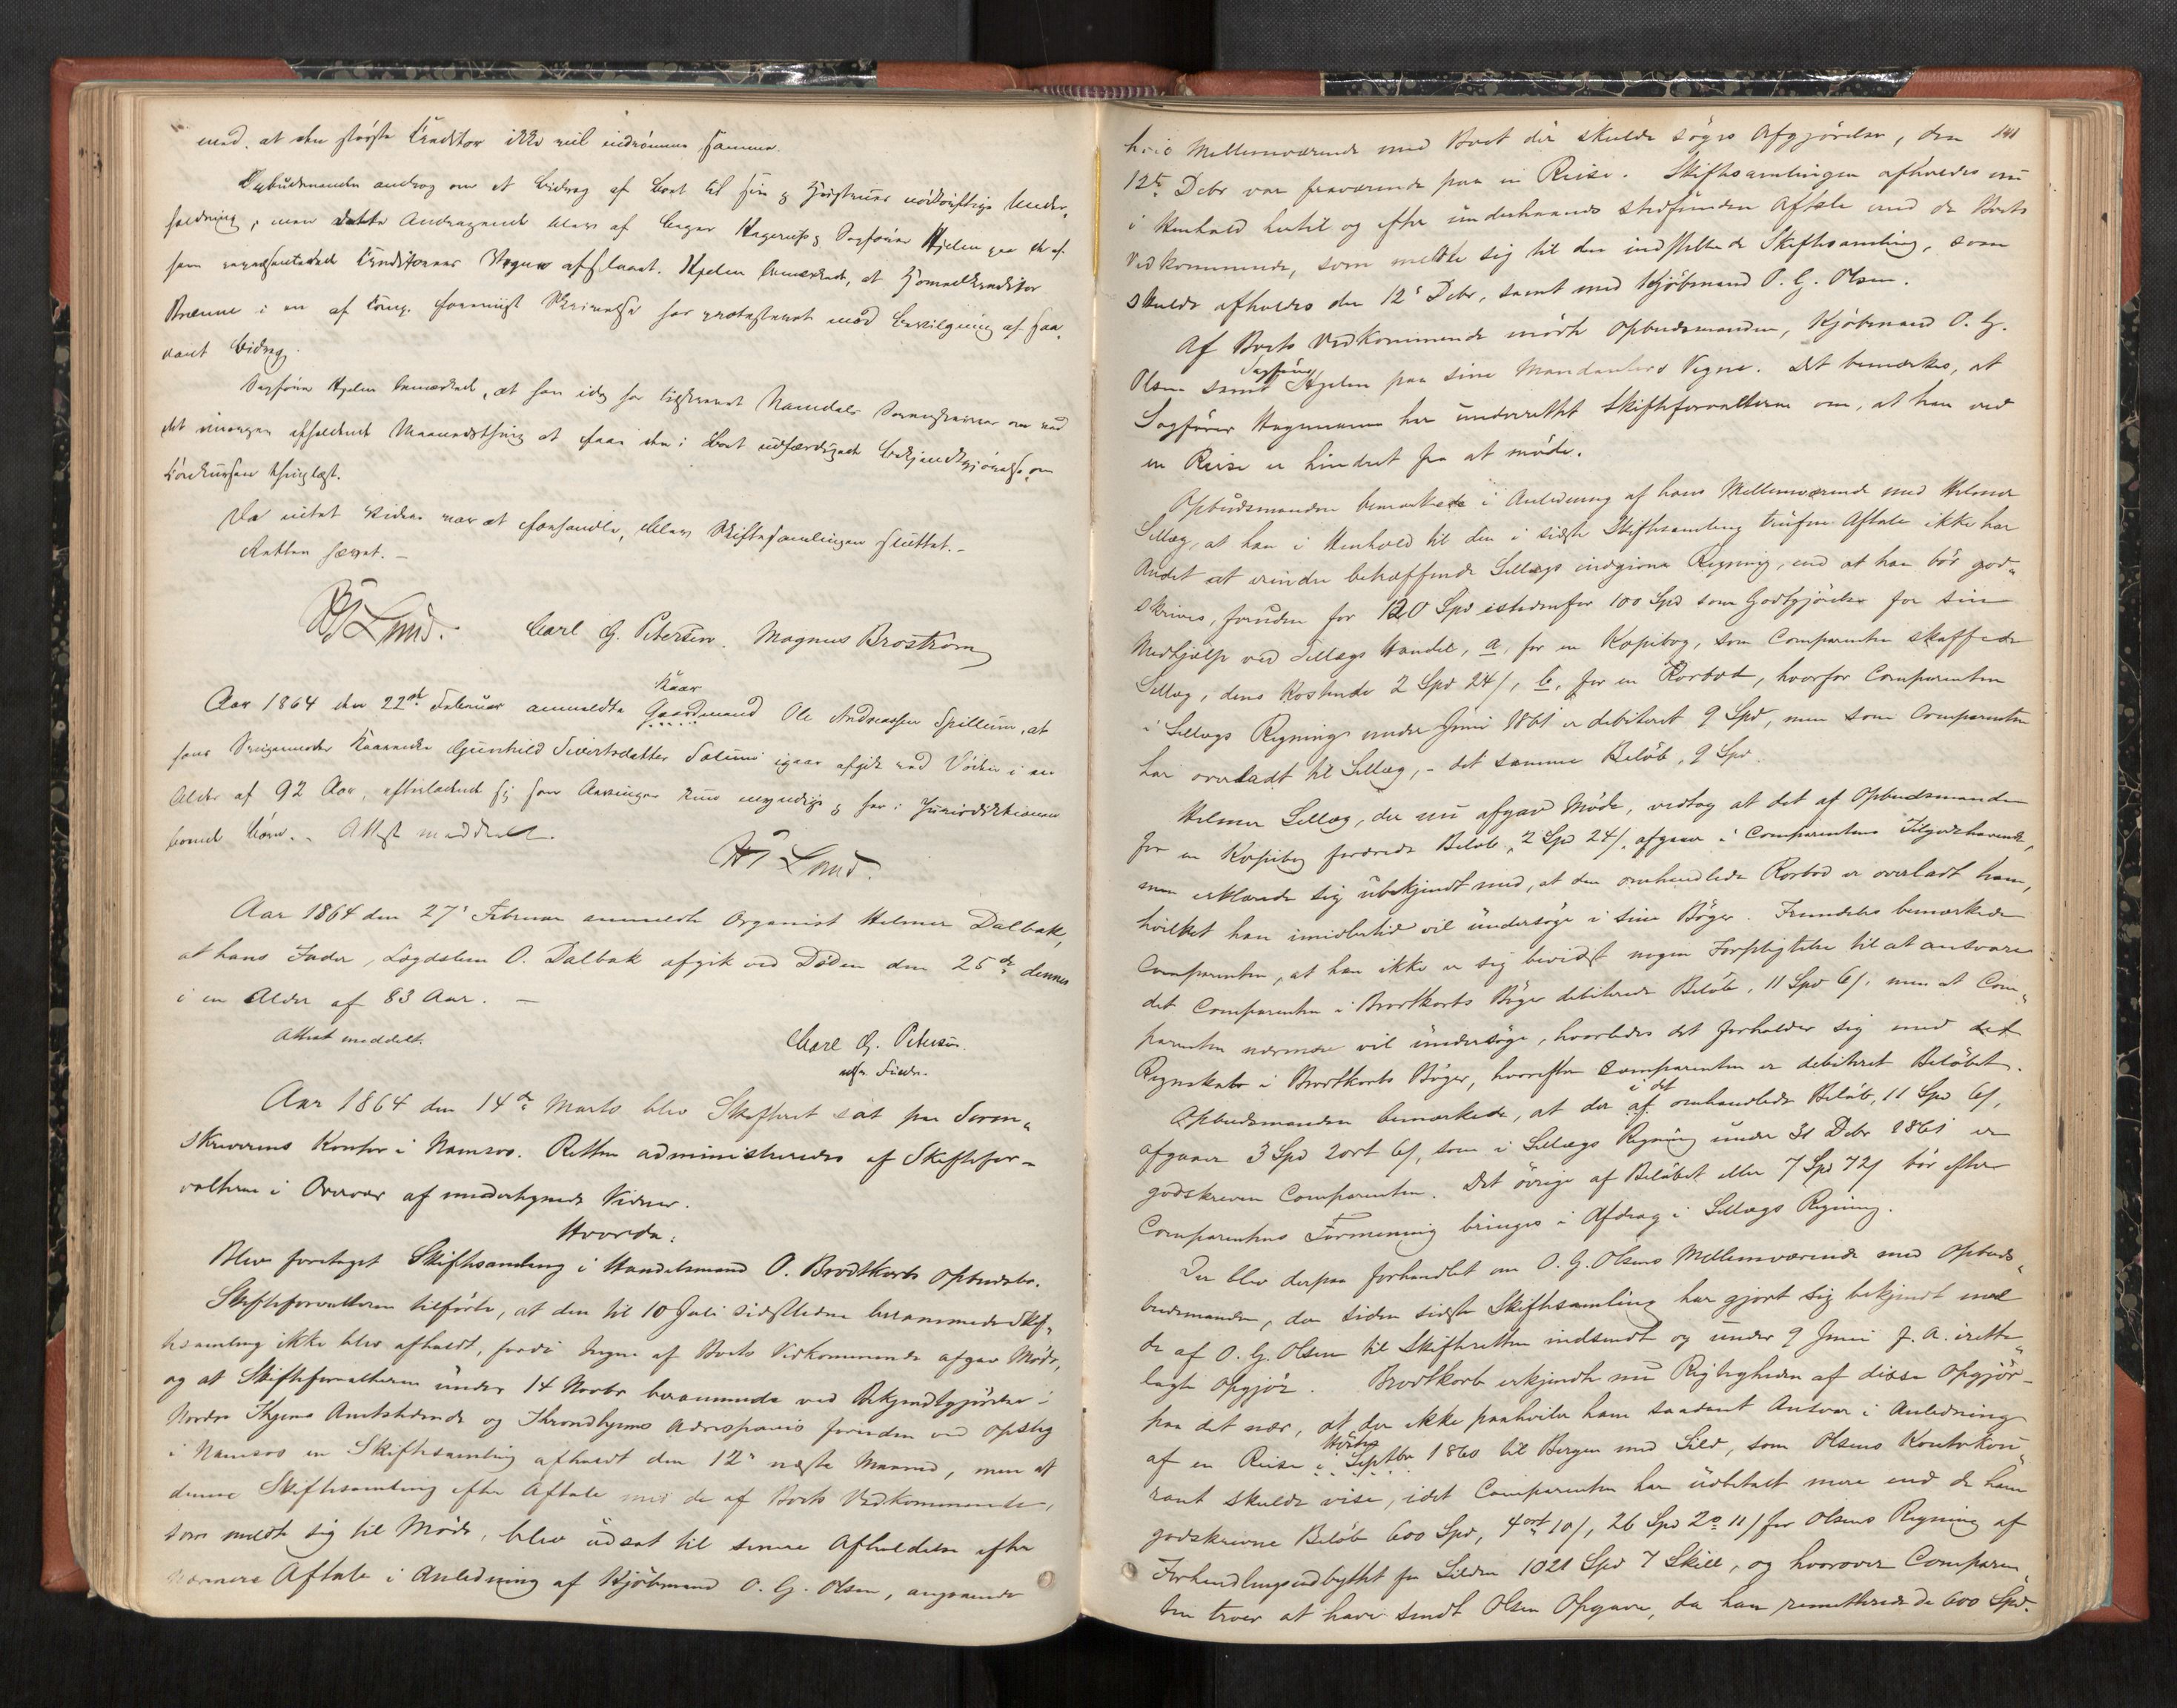 med, at den største Creditor ikke vil indrømme samme.
Opbudsmanden androg om et Bidrag af Boet til sin og Hustrues nødtørftige Under-
holdning, men dette Andragende blev af Hagerup og Sagfører Hjelm paa de af
ham repræsenterede Creditorers Vegne afslaaet. Hjelm bemærkede, at Hovedkreditor
i en af fremlagt Skrivelse har protesteret mod Bevilgning af saa-
dant Bidrag.
Sagfører Hjelm bemærkede, at han idag har tilskrevet Namdals Sorenskriver om ved
det imorgen afholdende Maanedsthing at faa den i Boet udfærdigede Bekjendtgjørelse om
Concursen thinglæst.
Da intet videre var at forhandle, blev Skiftesamlingen sluttet.-
Retten hævet. -
Lund. Carl G. Petersen. Magnus Broström
Aar 1864 den 22de Februar anmeldte Gaardmand Ole Andreassen Spillum, at
Kaar
hans Svigermoder Gunhild Sivertsdatter igaar afgik ved Døden i en
Alder af 92 Aar, efterladende sig som Arvinger kun myndige og her i Jurisdiktionen
boende Børn. - Attest meddeelt.
Lund.
Aar 1864 den 27de Februar anmeldte Organist Helmer Dalbak,
at hans Fader, Lægdslem O. Dalbak afgik ved Døden den 25de dennes
i en Alder af 83 Aar. -
Attest meddelt.
Carl G. Petersen.
Aar 1864 den 14de Marts blev Skifteret sat paa Soren-
skriverens Kontor i Namsos. Retten administreredes af Skiftefor-
valteren i Overvær af undertegnede Vidner.
Hvorda:
Blev foretaget Skiftesamling i Handelsmand O. Brodtkorbs Opbudsbo.
Skifteforvalteren tilførte, at den til 10 Juli sidstleden berammede Skif-
tesamling ikke blev afholdt, fordi Ingen af Boets Vedkommende afgav Møde,
og at Skifteforvalteren under 14 Novbr berammede ved Bekjendtgjørelse i
Nordre Thjems Amtstidende og Throndhjems Adresseavis foruden ved Opslag
i Namsos en Skiftesamling afholdt den 12te næste Maaned, men at
denne Skiftesamling efter Aftale med de af Boets Vedkommende,
som meldte sig til Møde, blev udsat til senere Afholdelse efter
nærmere Aftale i Anledning af Kjøbmand O. G. Olsen, angaaende
141
hvis Mellemværende med Boet der skulde søges Afgjørelse, den
12te Debr var fraværende paa en Reise. Skiftesamlingen afholdes nu
i Henhold hertil og efter underhaands stedfunden Aftale med de Boets
Vedkommende, som meldte sig til den indstillede Skiftesamling, som
skulde afholdes den 12te Debr, samt med Kjøbmand O. G. Olsen.
Af Boets Vedkommende mødte Opbudsmanden, Kjøbmand O. G.
Sagfører
Olsen samt Hjelm paa sine Mandanters Vegne. Det bemærkes, at
Sagfører Hagemann har underrettet Skifteforvalteren om, at han ved
en Reise er hindret fra at møde.
Opbudsmanden bemærkede i Anledning af hans Mellemværende med Helmer
Sellæg, at han i Henhold til den i sidste Skiftesamling trufne Aftale ikke har
Andet at erindre betræffende Sellægs indgivne Regning, end at han bør god-
skrives, foruden for 120 Spd istedenfor 100 Spd som Godtgjørelse for sin
Medhjælp ved Sellægs Handel, a, for en Kopibog, som Comparenten skaffede
Sellæg, dens Kostende 2 Spd 24 ß, b, for en Rorbod, hvorfor Comparenten
i Sellægs Regning under Juni 1861 er debiteret 9 Spd, men som Comparenten
har overladt til Sellæg, - det samme Beløb, 9 Spd.
Helmer Sellæg, der nu afgav Møde, vedtog at det af Opbudsmanden
for en Kopibog fordrede Beløb, 2 Spd 24 ß, afgaar i Comparentens Tilgodehavende,
men erklærede sig ubekjendt med, at den omhandlede Rorbod er overladt ham,
hvilket han imidlertid vil undersøge i sine Bøger. Fremdeles bemærkede
Comparenten, at han ikke er sig bevidst nogen Forpligtelse til at ansvare
det Comparenten i Brodtkorbs Bøger debiterede Beløb, 11 Spd 6 ß, men at Com-
parenten nærmere vil undersøge, hvorledes det forholder sig med det
Regnskab i Brodtkorbs Bøger, hvorefter Comparenten er debiteret Beløbet.
i det
Opbudsmanden bemærkede, at der af omhandlede Beløb, 11 Spd 6 ß,
afgaaer 3 Spd 2 ort 6 ß, som i Sellægs Regning under 31 Debr 1861 er
godskreven Comparenten. Det øvrige af Beløbet eller 7 Spd 72 ß bør efter
Comparentens Formening bringes i Afdrag i Sellægs Regning.
Der blev derpaa forhandlet om O. G. Olsens Mellemværende med Opbuds-
budsmanden, der siden sidste Skiftesamling har gjort sig bekjendt med
de af O. G. Olsen til Skifteretten indsendt og under 9 Juni f. A. irette-
lagte Opgjør. Brodtkorb erkjendte nu Rigtigheden af disse Opgjør-
paa det nær, at der ikke paahviler ham saadant Ansvar i Anledning
Høsten
af en Reise i Septbr 1860 til Bergen med Sild, som Olsens Kontokou-
rant skulde vise, idet Comparenten har udbetalt mere end de ham
godskrevne Beløb 600 Spd, 4 ort 10 ß, 26 Spd 2 o 11 ß for Olsens Regning af
Forhandlingsudbyttet for Silden 1021 Spd 7 Skill, og hvorover Comparen-
ten troer at have sendt Olsen Opgave, da han remitterede de 600 Spd.